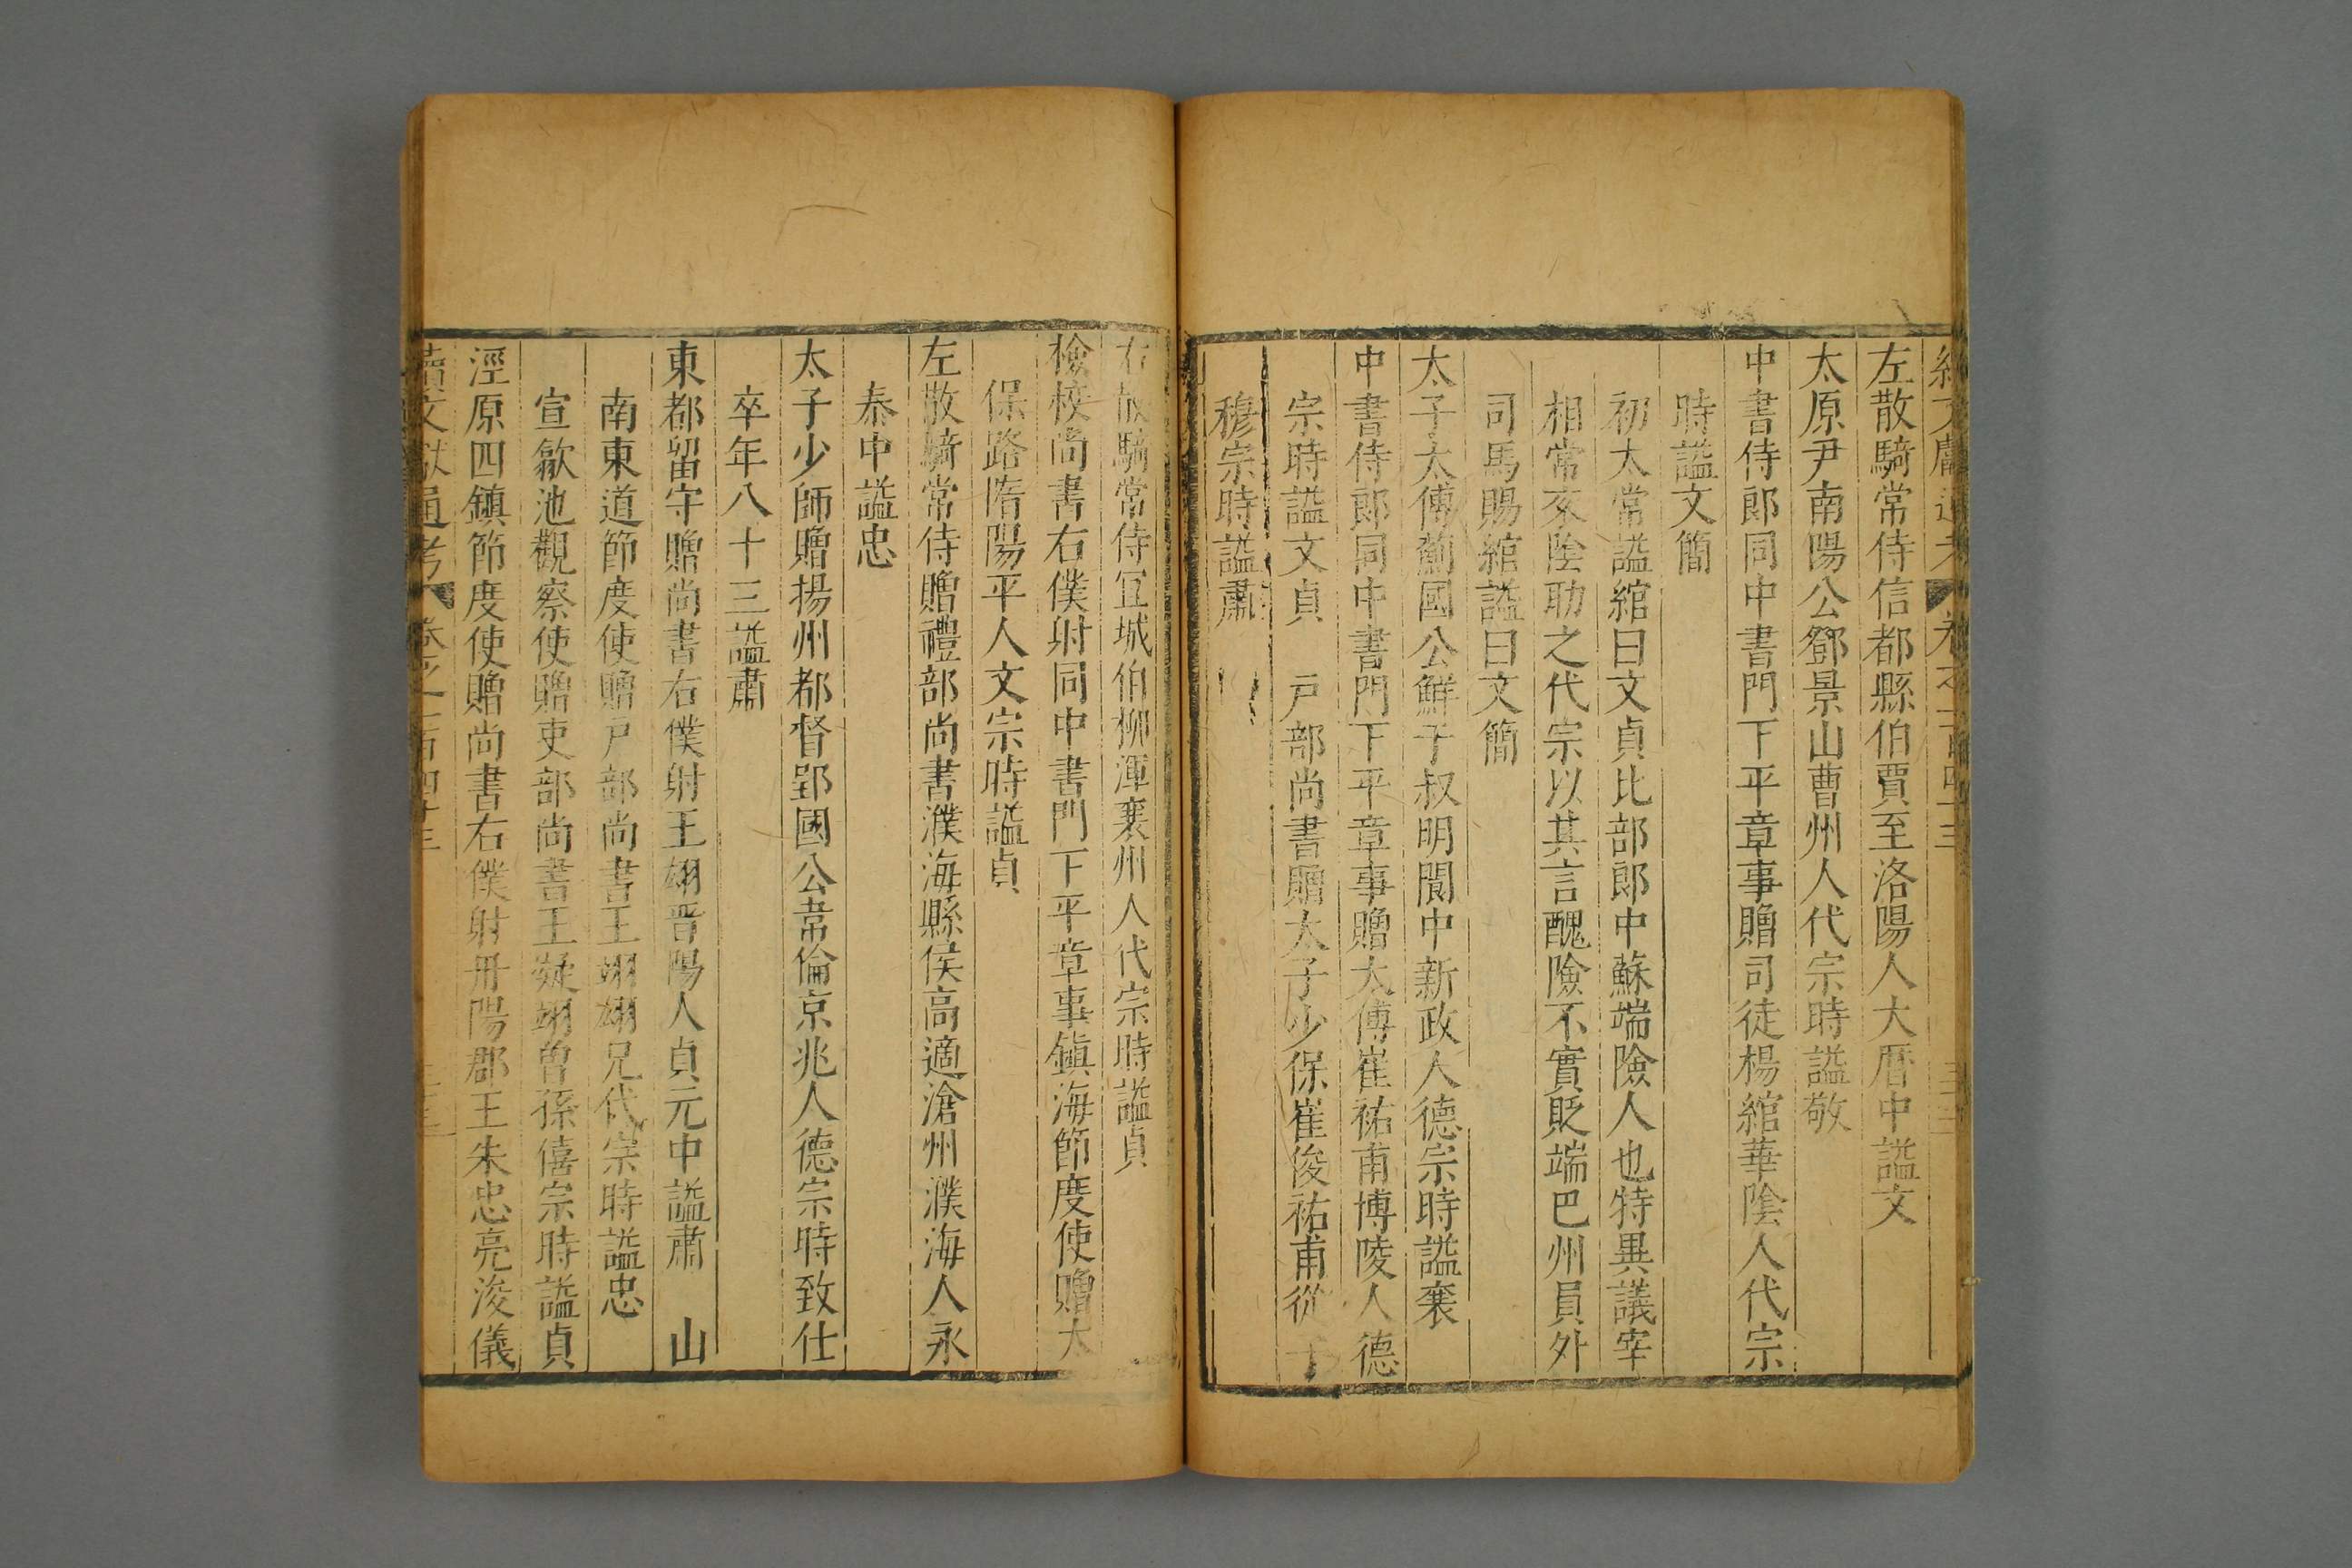 續文獻通考 卷之一百四十三
左散騎常侍信都縣伯賈至洛陽人大曆中謚文
太原尹南陽公鄧景山曹州人代宗時謚敬
中書侍郎同中書門下平章事贈司徒楊綰華陰人代宗
時謚文簡
初太常謚綰曰文貞比部郎中蘇端險人也特異議宰
相常袞陰助之代宗以其言醜險不實貶端巴州員外
司馬賜綰謚曰文簡
太子太傅薊國公鮮于叔明閬中新政人德宗時謚襄
中書侍郎同中書門下平章事贈太傅崔祐甫博陵人德
宗時謚文貞 戸部尚書贈太子少保崔俊祐甫從子
穆宗時謚肅
右散騎常侍宜城伯柳渾襄州人代宗時謚貞
檢校尚書右僕射同中書門下平章事鎮海節度使贈太
保路隋陽平人文宗時謚貞
左散騎常侍贈禮部尚書濮海縣侯高適滄州濮海人永
泰中謚忠
太子少師贈揚州都督郢國公韋倫京兆人德宗時致仕
卒年八十三謚肅
東都留守贈尚書右僕射王翃晋陽人貞元中謚肅 山
南東道節度使贈戸部尚書王翊翃兄代宗時謚忠
宣歙池觀察使贈吏部尚書王凝翊曾孫僖宗時謚貞
涇原四鎮節度使贈尚書右僕射丹陽郡王朱忠亮浚儀
續文獻通考 卷之一百四十三